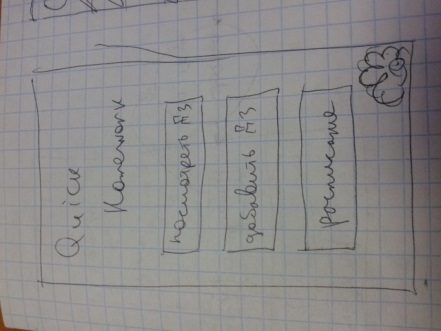 Quick
Homework
посмотреть ДЗ
добавить ДЗ
расписание